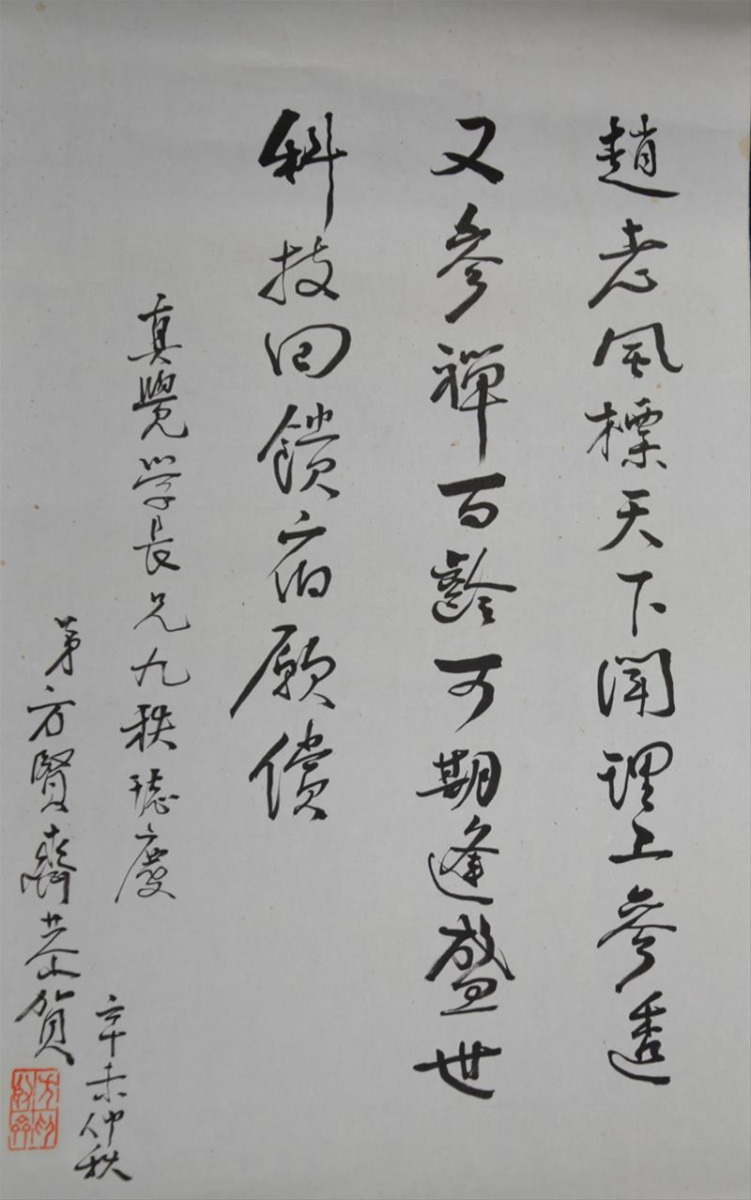 趙老風標天下聞理工參透
又參禪百齡可期逢盛世
科技回饋宿願償
真覺學長兄九秩誌慶
弟方賢齊恭賀
辛未仲秋